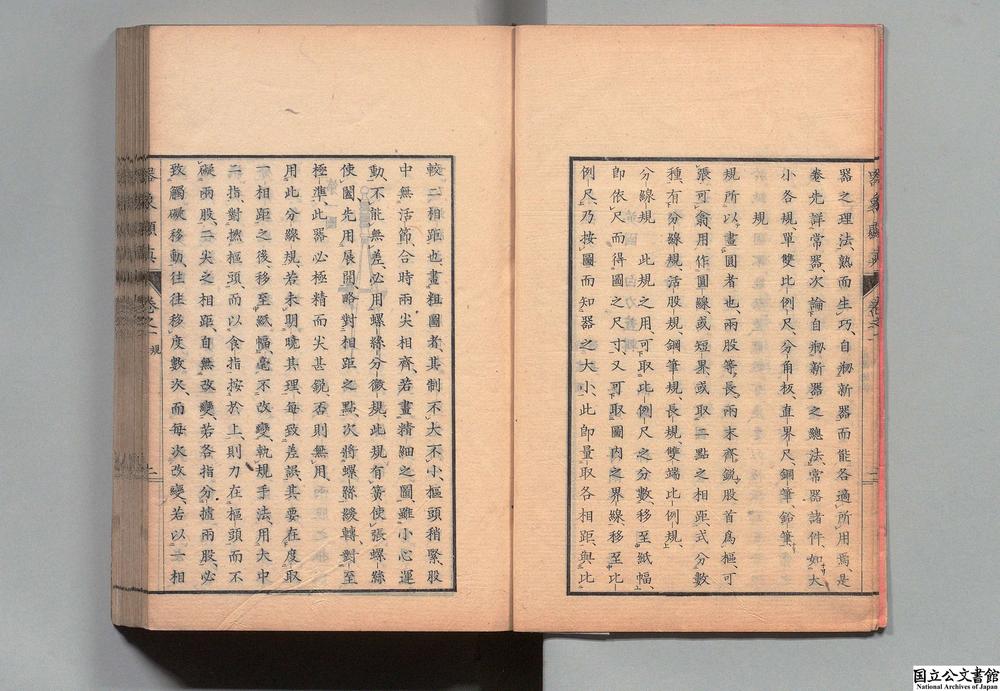 器之理法、熟而生巧、自剏新器而能各適所用焉、是
卷先詳常器、次論自剏新器之總法、常器諸件如大
小各規、單雙比例尺、分角板、直界尺、鋼筆、鉛筆、
規
規所以畫圓者也、兩股等長、兩末齊銳、股首爲樞、可
張可翕、用作圓線、或短界、或取二點之相距、式分數
種、有分線規、活股規、鋼筆規、長規、雙端比例規、
分線規 此規之用、可取比例尺之分數、移至紙幅、
卽依尺而得圖之尺寸、又可取圖內之界線、移至比
例尺、乃按圖而知器之大小、此卽量取各相距與比
器象顯真 卷之一
較二相距也、畫粗圖者、其制不大不小、樞頭稍緊、股
中無活節、合時兩尖相齊、若畫精細之圖、雖小心運
動、不能無差、必用螺絲分微規、此規有簧使張、螺絲
使闔、先用展開、略對相距之點、次將螺絲緩轉、對至
極準、此器必極精而尖甚銳、否則無用、
用此分線規、若未明曉其理、每致差誤、其要在度取
一相距之後、移至紙幅、毫不改變、執規手法、用大中
二指、對撚樞頭、而以食指按於上、則力在樞頭而不
礙兩股、二尖之相距、自無改變、若各指分攎兩股、必
致觸礙移動、往往移度數次、而每次改變、若以一相
器象顯真 卷之一 規
国立公文書館
National Archives of Japan